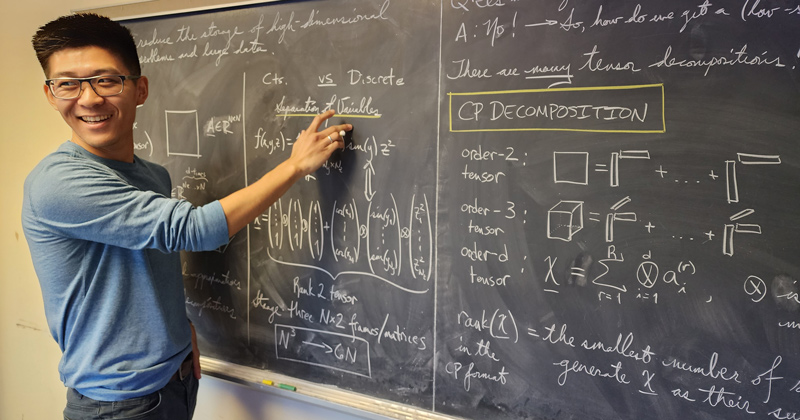 reduce the storage of high-dimensional
problems and large data.
A ∈ R^{N×N}
Cts. vs Discrete
Separation of Variables
f(x,y,z) = sin(y) z²
x = (1 ⋮ 1) ⊗ (1 ⋮ 1) ⊗ (1 ⋮ 1) + (cos(x₁) ⋮ ) ⊗ (sin(y₁) ⋮ sin(y_N)) ⊗ (z₁² z₂² ⋮ z_N²)
Rank 2 tensor
Storage three N×2 frames/matrices
N³ → 6N
A: No! → So, how do we get a (low-
There are many tensor decompositions.
CP DECOMPOSITION
order-2 tensor : = + .... +
order-3 tensor : = + .... +
order-d tensor : X = Σ_{r=1}^{R} ⊗_{i=1}^{d} a_i^{(r)} , ⊗ is
rank(X) = the smallest number of
in the CP format
generate X as their su